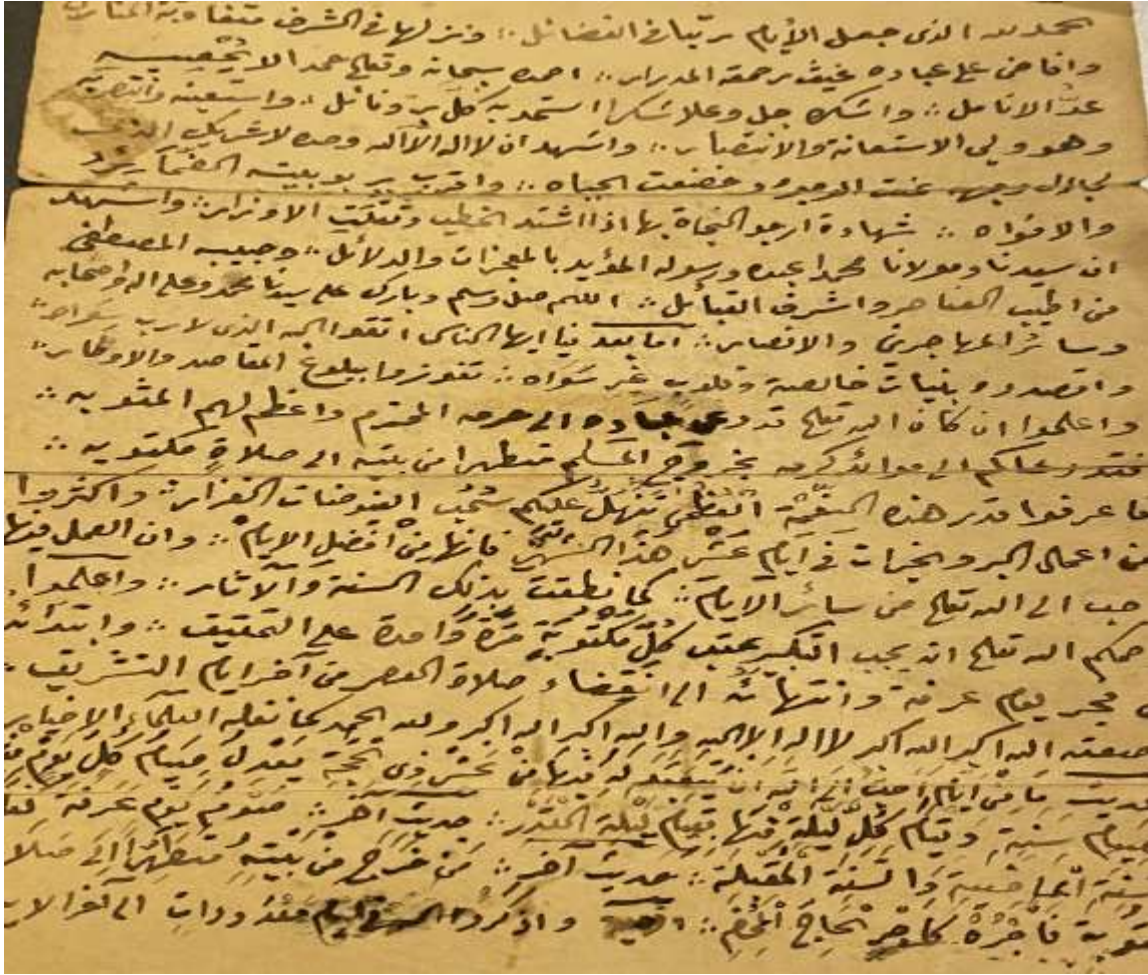 الحمد لله الذى جعل الأيام رتبا فى الفضائل ؞ ونزلها فى الشرف متفاوتة المنازل
وافاض على عباده غيث رحمته المدرار ؞ احمده سبحانه وتعالى حمدا لا يحصيه
عد الانامل ؞ واشكره جل وعلا شكرا استمد به كل بر ونائل ؞ واستعينه وانتصر به
وهو ولى الاستعانة والانتصار ؞ واشهد ان لا اله الا الله وحده لا شريك له الذى
لجلال وجهه عنت الوجوه وخضعت الجباه ؞ واقرت بربوبيته الضمائر
والافواه ؞ شهادة ارجو النجاة بها اذا اشتد الخطب وثقلت الاوزار ؞ واشهد
ان سيدنا ومولانا محمدا عبده ورسوله المؤيد بالمعجزات والدلائل ؞ وحبيبه المصطفى
من اطيب العناصر واشرف القبائل ؞ اللهم صل وسلم وبارك على سيدنا محمد وعلى اله واصحابه
وسائر المهاجرين والانصار ؞ اما بعد فيا ايها الناس اتقوا الله الذى لا رب سواه ؞
واقصدوه بنيات خالصة وقلوب غير ؞ تفوزوا ببلوغ المقاصد والاوطار ؞
واعلموا ان كان الله تعالى قد دعى عباده الى حرمه المحترم واعظم لهم المثوبه ؞
فقد دعاكم الى موائد كرمه بخروج المسلم متطهرا من بيته الى صلاة مكتوبه ؞
فاعرفوا قدر هذه النعمة العظمى تنهل عليكم سحب الفيوضات الغزار ؞ واكثروا
من اعمال البر والخيرات فى ايام عشر هذا الشهر فانها من افضل الايام ؞ وان العمل فيها
احب الى الله تعالى من سائر الايام ؞ كما نطقت بذلك السنة والآثار ؞ واعلموا
رحمكم الله تعالى انه يجب التكبير عقب كل مكتوبة مرة واحدة على التحقيق ؞ وابتدائه
من فجر يوم عرفة وانتهائه الى انقضاء صلاة العصر من آخر ايام التشريق ؞
وصيغته الله اكبر الله اكبر لا اله الا الله والله اكبر الله اكبر ولله الحمد كما نقله العلماء الاخيار
حديث ما من ايام احب الى الله ان يتعبد له فيها من عشر ذى الحجة يعدل صيام كل يوم منها
بصيام سنة وقيام كل ليلة منها بقيام ليلة القدر ؞ حديث آخر ؞ صوم يوم عرفة
السنة الماضية والسنة المقبلة ؞ حديث آخر ؞ من خرج من بيته متطهرا الى صلاة
مكتوبة فأجره كأجر الحاج المحرم ؞ واذكروا الله فى ايام معدودات الى آخر الاية